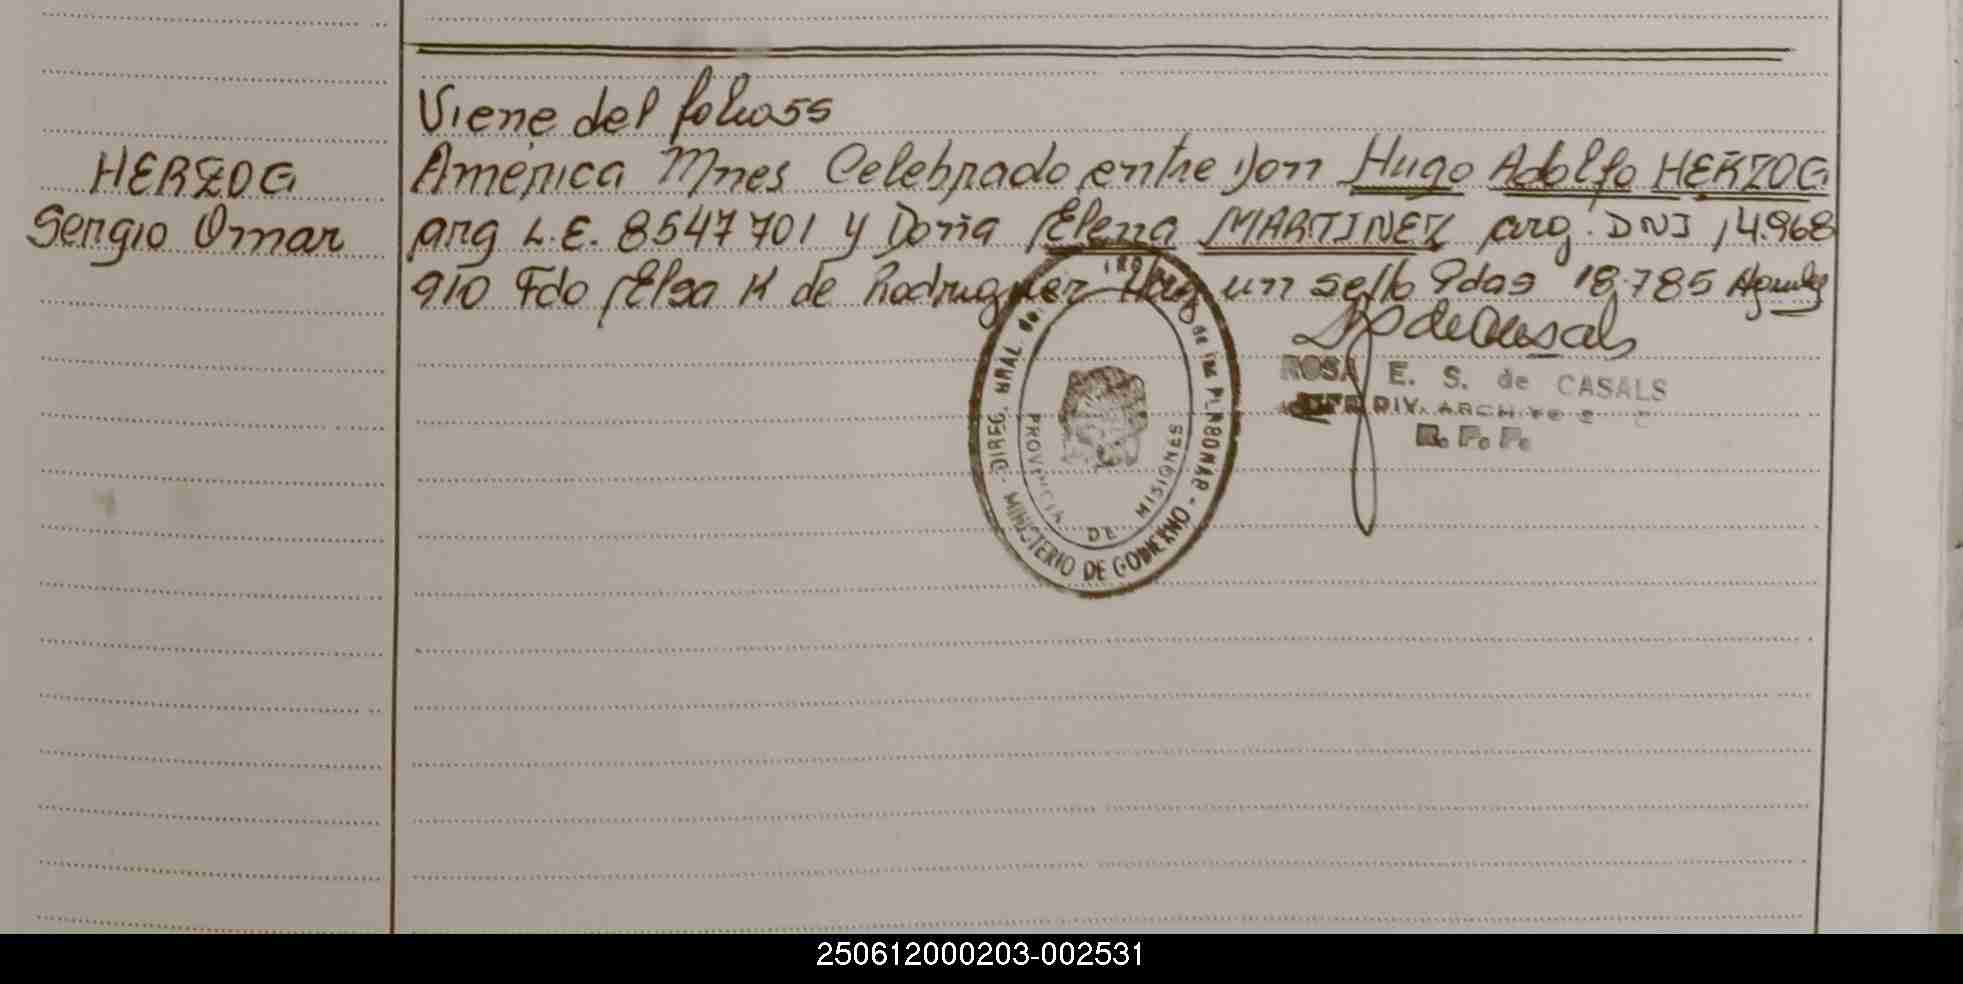 Viene del folio 55
HERZOG
Sergio Omar
América Mnes Celebrado entre Don Hugo Adolfo HERZOG
arg L.E. 8547701 y Doña Elena MARTINEZ arg. DNI 14.968
910 Fdo Elsa K de Rodriguez Hay un sello Pdas 18.785
ROSA E. S. de CASALS
JEFE DIV. ARCHIVO
R. P. P.
DIREC. GRAL. de las PERSONAS
MINISTERIO DE GOBIERNO
PROVINCIA DE MISIONES
250612000203-002531